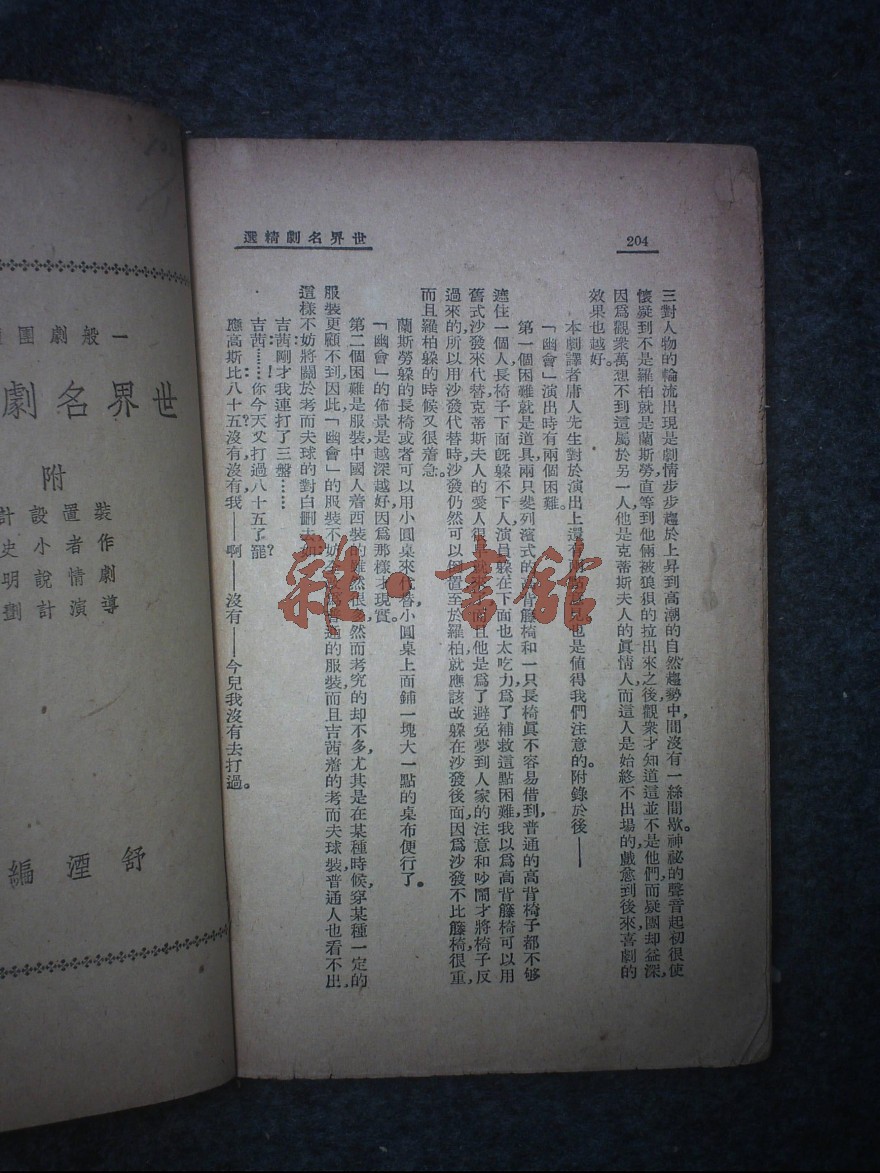 204
世界名劇精選
三對人物的輪流出現是劇情步步趨於上昇到高潮的自然趨勢中,間沒有一絲間歇。神祕的聲音起初很使
懷疑到不是羅柏就是蘭斯勞,直等到他倆被狼狽的拉出來之後觀衆才知道這並不是他們,而疑團却益深,
因爲觀衆萬想不到這屬於另一人,他是克蒂斯夫人的眞情人,而這人是始終不出場的。戲愈到後來喜劇的
效果也越好。
本劇譯者庸人先生對於演出上還有 也是値得我們注意的。附錄於後——
「幽會」演出時有兩個困難。
第一個困難就是道具,兩只斐列濱式的高背籐椅和一只長椅眞不容易借到,普通的高背椅子都不够
遮住一個人,長椅子下面旣躲不下人,演員躲在下面也太吃力,爲了補救這點困難,我以爲高背籐椅可以用
舊式沙發來代替,克蒂斯夫人的愛人很 而且他是爲了避免夢到人家的注意和吵鬧才將椅子反
過來的,所以用沙發代替時,沙發仍然可以倒置,至於羅柏就應該改躲在沙發後面,因爲沙發不比籐椅很重,
而且羅柏躲的時候又很着急。
蘭斯勞躲的長椅或者可以用小圓桌來代替,小圓桌上面鋪一塊大一點的桌布便行了。
「幽會」的佈景是越深越好,因爲那樣才現實。
第二個困難是服裝,中國人着西裝的雖然很 然而考究的却不多,尤其是在某種時候,穿某種一定的
服裝更顧不到,因此「幽會」的服裝不妨 普通的服裝,而且吉茜着的考而夫球裝普通人也看不出,
這樣不妨將關於考而夫球的對白刪去如:
吉茜:剛才我連打了三盤……
吉茜:……你今天又打過八十五了罷?
應高斯比:八十五?沒有,沒有,我——啊——沒有——今兒我沒有去打過。
一般劇團
世界名劇
附
裝置設計
作者小史
劇情說明
導演計劃
舒湮編
雜·書館